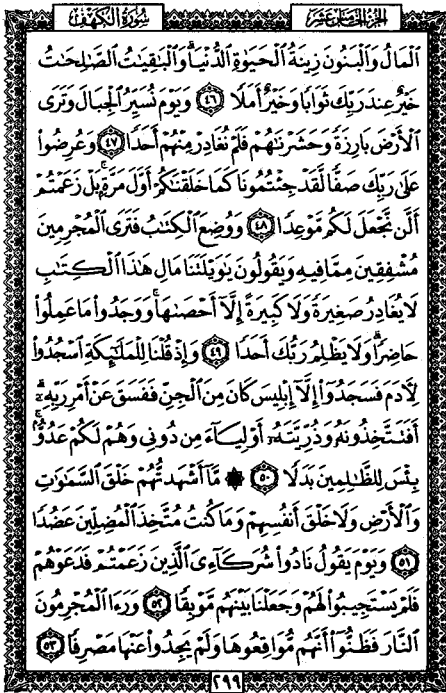 سُورَةُ الكَهْفِ الجُزْءُ الخَامِسَ عَشَرَ
ٱلْمَالُ وَٱلْبَنُونَ زِينَةُ ٱلْحَيَوٰةِ ٱلدُّنْيَا ۖ وَٱلْبَٰقِيَٰتُ ٱلصَّٰلِحَٰتُ
خَيْرٌ عِندَ رَبِّكَ ثَوَابًا وَخَيْرٌ أَمَلًا ٤٦ وَيَوْمَ نُسَيِّرُ ٱلْجِبَالَ وَتَرَى
ٱلْأَرْضَ بَارِزَةً وَحَشَرْنَٰهُمْ فَلَمْ نُغَادِرْ مِنْهُمْ أَحَدًا ٤٧ وَعُرِضُوا۟
عَلَىٰ رَبِّكَ صَفًّا لَّقَدْ جِئْتُمُونَا كَمَا خَلَقْنَٰكُمْ أَوَّلَ مَرَّةٍۭ ۚ بَلْ زَعَمْتُمْ
أَلَّن نَّجْعَلَ لَكُم مَّوْعِدًا ٤٨ وَوُضِعَ ٱلْكِتَٰبُ فَتَرَى ٱلْمُجْرِمِينَ
مُشْفِقِينَ مِمَّا فِيهِ وَيَقُولُونَ يَٰوَيْلَتَنَا مَالِ هَٰذَا ٱلْكِتَٰبِ
لَا يُغَادِرُ صَغِيرَةً وَلَا كَبِيرَةً إِلَّآ أَحْصَىٰهَا ۚ وَوَجَدُوا۟ مَا عَمِلُوا۟
حَاضِرًا ۗ وَلَا يَظْلِمُ رَبُّكَ أَحَدًا ٤٩ وَإِذْ قُلْنَا لِلْمَلَٰٓئِكَةِ ٱسْجُدُوا۟
لِءَادَمَ فَسَجَدُوٓا۟ إِلَّآ إِبْلِيسَ كَانَ مِنَ ٱلْجِنِّ فَفَسَقَ عَنْ أَمْرِ رَبِّهِۦٓ ۗ
أَفَتَتَّخِذُونَهُۥ وَذُرِّيَّتَهُۥٓ أَوْلِيَآءَ مِن دُونِى وَهُمْ لَكُمْ عَدُوٌّۢ ۚ
بِئْسَ لِلظَّٰلِمِينَ بَدَلًا ٥٠ ۞ مَّآ أَشْهَدتُّهُمْ خَلْقَ ٱلسَّمَٰوَٰتِ
وَٱلْأَرْضِ وَلَا خَلْقَ أَنفُسِهِمْ وَمَا كُنتُ مُتَّخِذَ ٱلْمُضِلِّينَ عَضُدًا
٥١ وَيَوْمَ يَقُولُ نَادُوا۟ شُرَكَآءِىَ ٱلَّذِينَ زَعَمْتُمْ فَدَعَوْهُمْ
فَلَمْ يَسْتَجِيبُوا۟ لَهُمْ وَجَعَلْنَا بَيْنَهُم مَّوْبِقًا ٥٢ وَرَءَا ٱلْمُجْرِمُونَ
ٱلنَّارَ فَظَنُّوٓا۟ أَنَّهُم مُّوَاقِعُوهَا وَلَمْ يَجِدُوا۟ عَنْهَا مَصْرِفًا ٥٣
٢٩٩